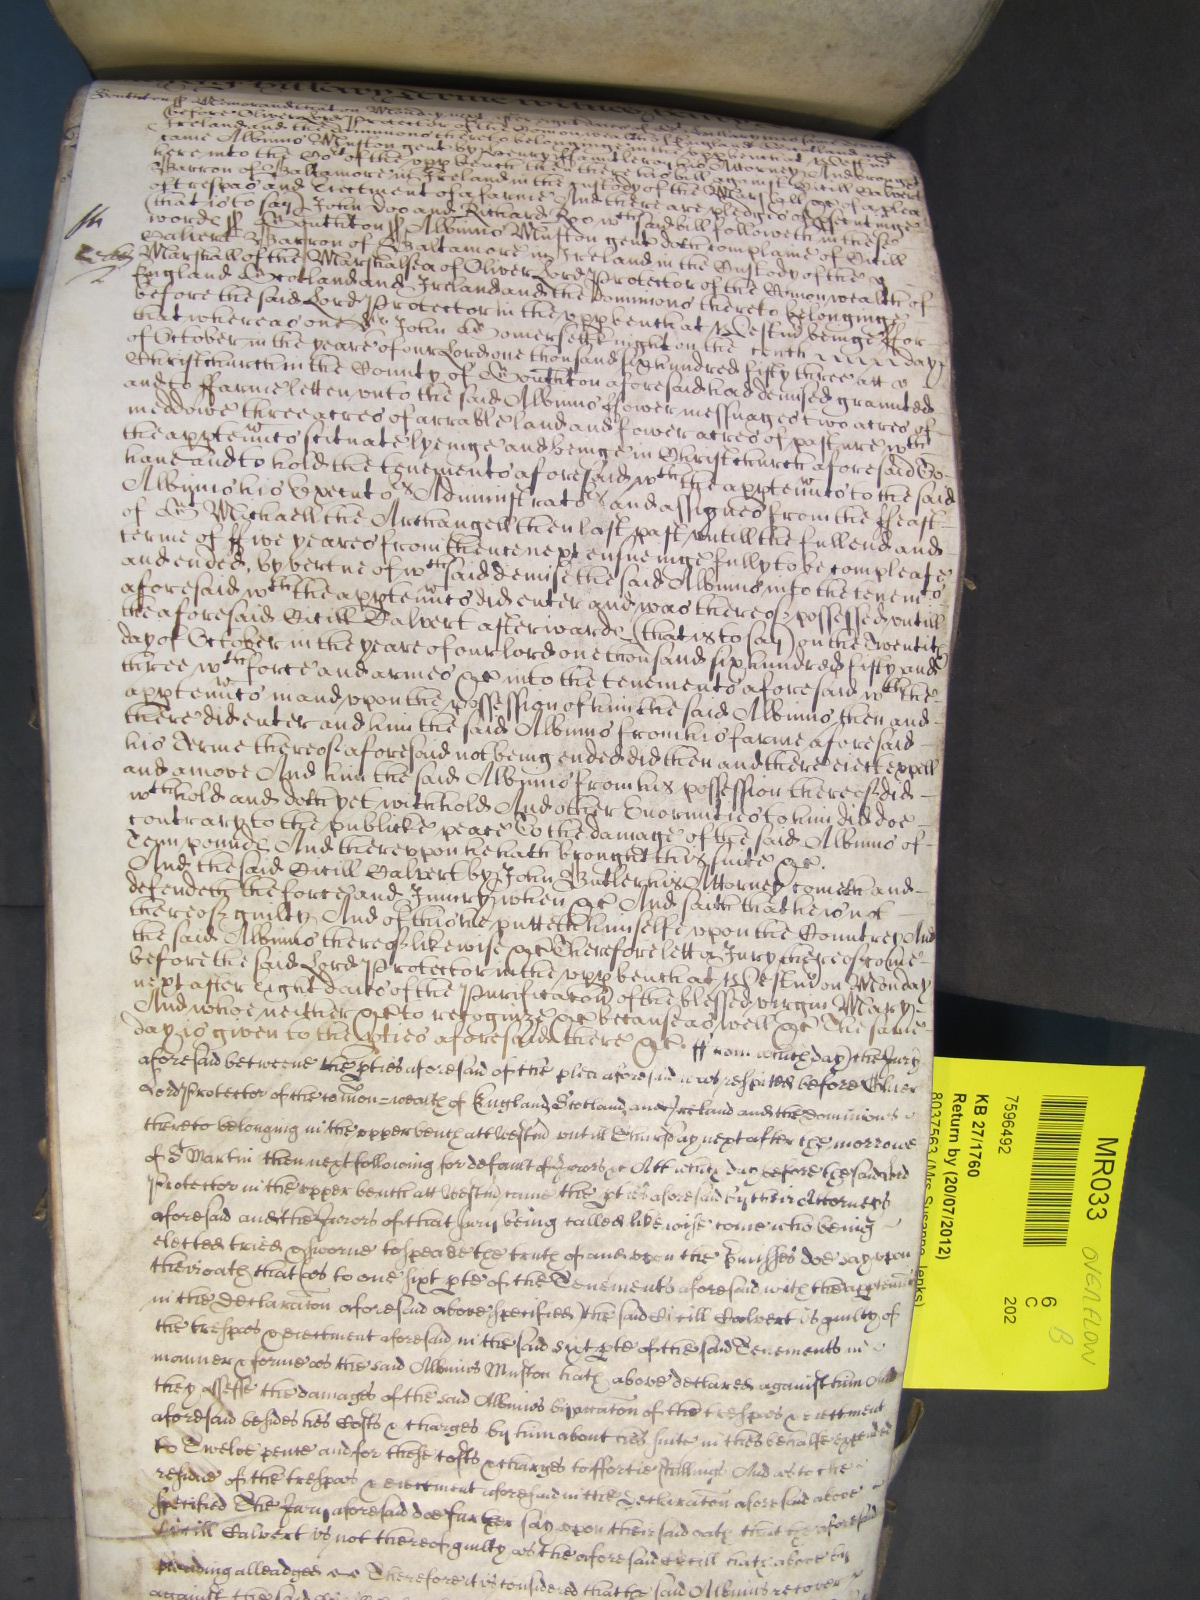 Memorand that on Monday next after eight daies of
before Oliver Lord Protector of the Comonwealth of England Scotland and
Ireland and the dominions thereto belonginge in the upp bench at Westm
came Albinus Muston gent by Henry his Attorney And brought
here into the Co of the upp bench then there his bill against Cicill Calvert
Barron of Baltamore in Ireland in the custody of the Marshall &c of a plea
of trespas and Eiectment of a farme And there are pledges of
(that is to say) John Doo and Richard Roo wch said bill followeth in these
words ss Southton ss Albinus Muston gent doth complaine of Cicill
Calvert Barron of Baltamore in Ireland in the Custody of the
Marshall of the Marshalsea of Oliver Lord Protector of the Comonwealth of
England Scotland and Ireland and the Dominions thereto belonginge
before the said Lord Protector in the upp bench at Westm beinge For
that whereas one Sr John Somersett knight on the tenth day
of October in the yeare of our Lord one thousand six hundred fifty three att
Christchurch in the County of Southton aforesaid had demised graunted
and to ffarme letten unto the said Albinus ffower messuages two acres of
meddowe three acres of arrable land and fower acres of pasture wth
the apptennts scituate lyeinge and beinge in Christchurch aforesaid To
have and to hold the tenements aforesaid wth the apptennts to the said
Albinus his Executors Administrators and assignes from the ffeast
of St Michaell the Archangell then last past untill the full end and
terme of ffive yeares from thence next ensueinge fully to be compleate
and ended, by vertue of wch said demise the said Albinus into the tenemts
aforesaid wth the apptennts did enter and was thereof possessed untill
the aforesaid Cicill Calvert afterwards (that is to say) on the Twentith
day of October in the yeare of our lord one thousand six hundred fifty and
three wth force and armes &c into the tenements aforesaid wth the
apptennts in and upon the possession of him the said Albinus then and
there did enter and him the said Albinus from his farme aforesaid
his Terme thereof aforesaid not being ended did then and there eiect expell
and amove And him the said Albinus from his possession thereof did
wthhold and doth yet withhold And other Enormities to him did doe
contrary to the publicke peace To the damage of the said Albinus of
Tenn pounds And thereupon he hath brought this suite &c.
And the said Cicill Calvert by John Butler his Attorney cometh and
defendeth the force and Iniury when &c And saith that he is not
thereof guilty And of this he putteth himselfe upon the Countrey And
the said Albinus thereof likewise &c Therefore lett a Jury thereof come
before the said Lord Protector in the upp bench at Westm on Monday
next after Eight daies of the Purificaton of the blessed virgin Mary
And who neither &c to recognize &c because as well &c The same
day is given to the pties aforesaid there &c. ff rom which day the Jury
aforesaid betweene the pties aforesaid of the plea aforesaid was respited before Oliver
Lord Protector of the comon=wealth of England, Scotland, and Ireland and the dominions
thereto belonging in the upper bench att Westm untill Thursday next after the morrowe
of St Martin then next following for default of Jurors &c Att which day before the said Lord
Protector in the upper bench att Westm came the pties aforesaid by their Attorneys
aforesaid and the Jurors of that Jury being called likewise come who being
elected tried & sworne to speake the truth of and upon the pmisses doe say upon
their oath that as to one sixt pte of the Tenements aforesaid with the apptennts
in the Declaraton aforesaid above specified the said Cicill Calvert is guilty of
the trespas & eiectment aforesaid in the said sixt pte of the said Tenements in
manner & forme as the said Albinus Muston hath above declared against him And
they assesse the damages of the said Albinus by occaton of the trespas & eiectment
aforesaid besides his Costs & charges by him about his suite in this behalfe expended
to Twelve pence and for these costs & charges to ffortie shillings And as to the
residue of the trespas & eiectment aforesaid in the Declaraton aforesaid above
specified The Jury aforesaid doe further say upon their said oath that the aforesaid
Cicill Calvert is not thereof guilty as the aforesaid Cicill hath above by
pleading alleadged Therefore it is considered that the said Albinus recover
against the said
MR033
OVERFLOW
B
6
C
202
7596492
KB 27/1760
Return by (20/07/2012)
8037563 (Mrs Susanne Jenks)